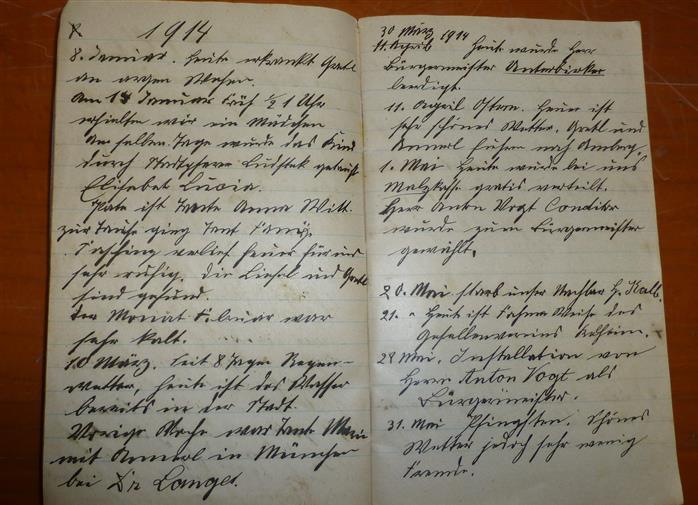 1914
8. Januar. Heute erkrankt Gretl
an argen Wehen.
Am 13 Januar früh ½ 1 Uhr
erhielten wir ein Mädchen
An selben Tage wurde das Kind
durch Stadtpfarrer getauft
Elisabet Lucia.
Pate ist Tante Anna Witt.
zur Taufe ging Tant Fanny.
Fasching verlief heuer für uns
sehr ruhig. Die Liesel und Gretl
sind gesund.
Der Monat Februar war
sehr kalt.
10 März. Seit 8 Tagen Regen-
wetter, heute ist das Wasser
bereits in der Stadt.
Vorige Woche war Tante Marie
mit Annerl in München
bei Dr Langes.
30 März 1914
11. April Heute wurde Herr
Bürgermeister Unterbirker
beerdigt.
11. April Ostern. Heuer ist
sehr schönes Wetter. Gretl und
Annerl fuhren nach Amberg.
1. Mai Heute wurde bei uns
Malzkafe gratis verteilt.
Herr Anton Vogt Conditor
wurde zum Bürgermeister
gewählt.
20. Mai starb unser Nachbar H. Kalb.
21. " Heute ist Fahnen Weihe des
Gesellenvereins Kelheim.
28 Mai. Installation von
Herrn Anton Vogt als
Bürgermeister.
31. Mai Pfingsten. Schönes
Wetter jedoch sehr wenig
Fremde.